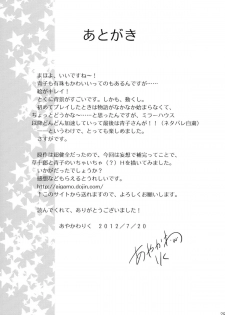 あとがき
まほよ、いいですね～！
青子も有珠もかわいいってのもあるんですが……
絵がキレイ！
とくに背景がすごいです。しかも、動くし。
初めてプレイしたときは物語がなかなか始まらなくて、
ちょっとどうかな……と思ったんですが、ミラーハウス
以降どんどん加速していって最後は青子さんが！！（ネタバレ自粛）
――というわけで、とっても楽しかったです。
さすがです。
原作は超健全だったので、今回は妄想で補完ってことで、
草十郎と青子のいちゃいちゃ（？）Hを描いてみました。
いかがだったでしょうか？
感想などもらえるとうれしいです。
上このサイトから送れますので、よろしくお願いします。
読んでくれて、ありがとうございました！
あやかわりく　２０１２／７／２０
あやかわりく
25